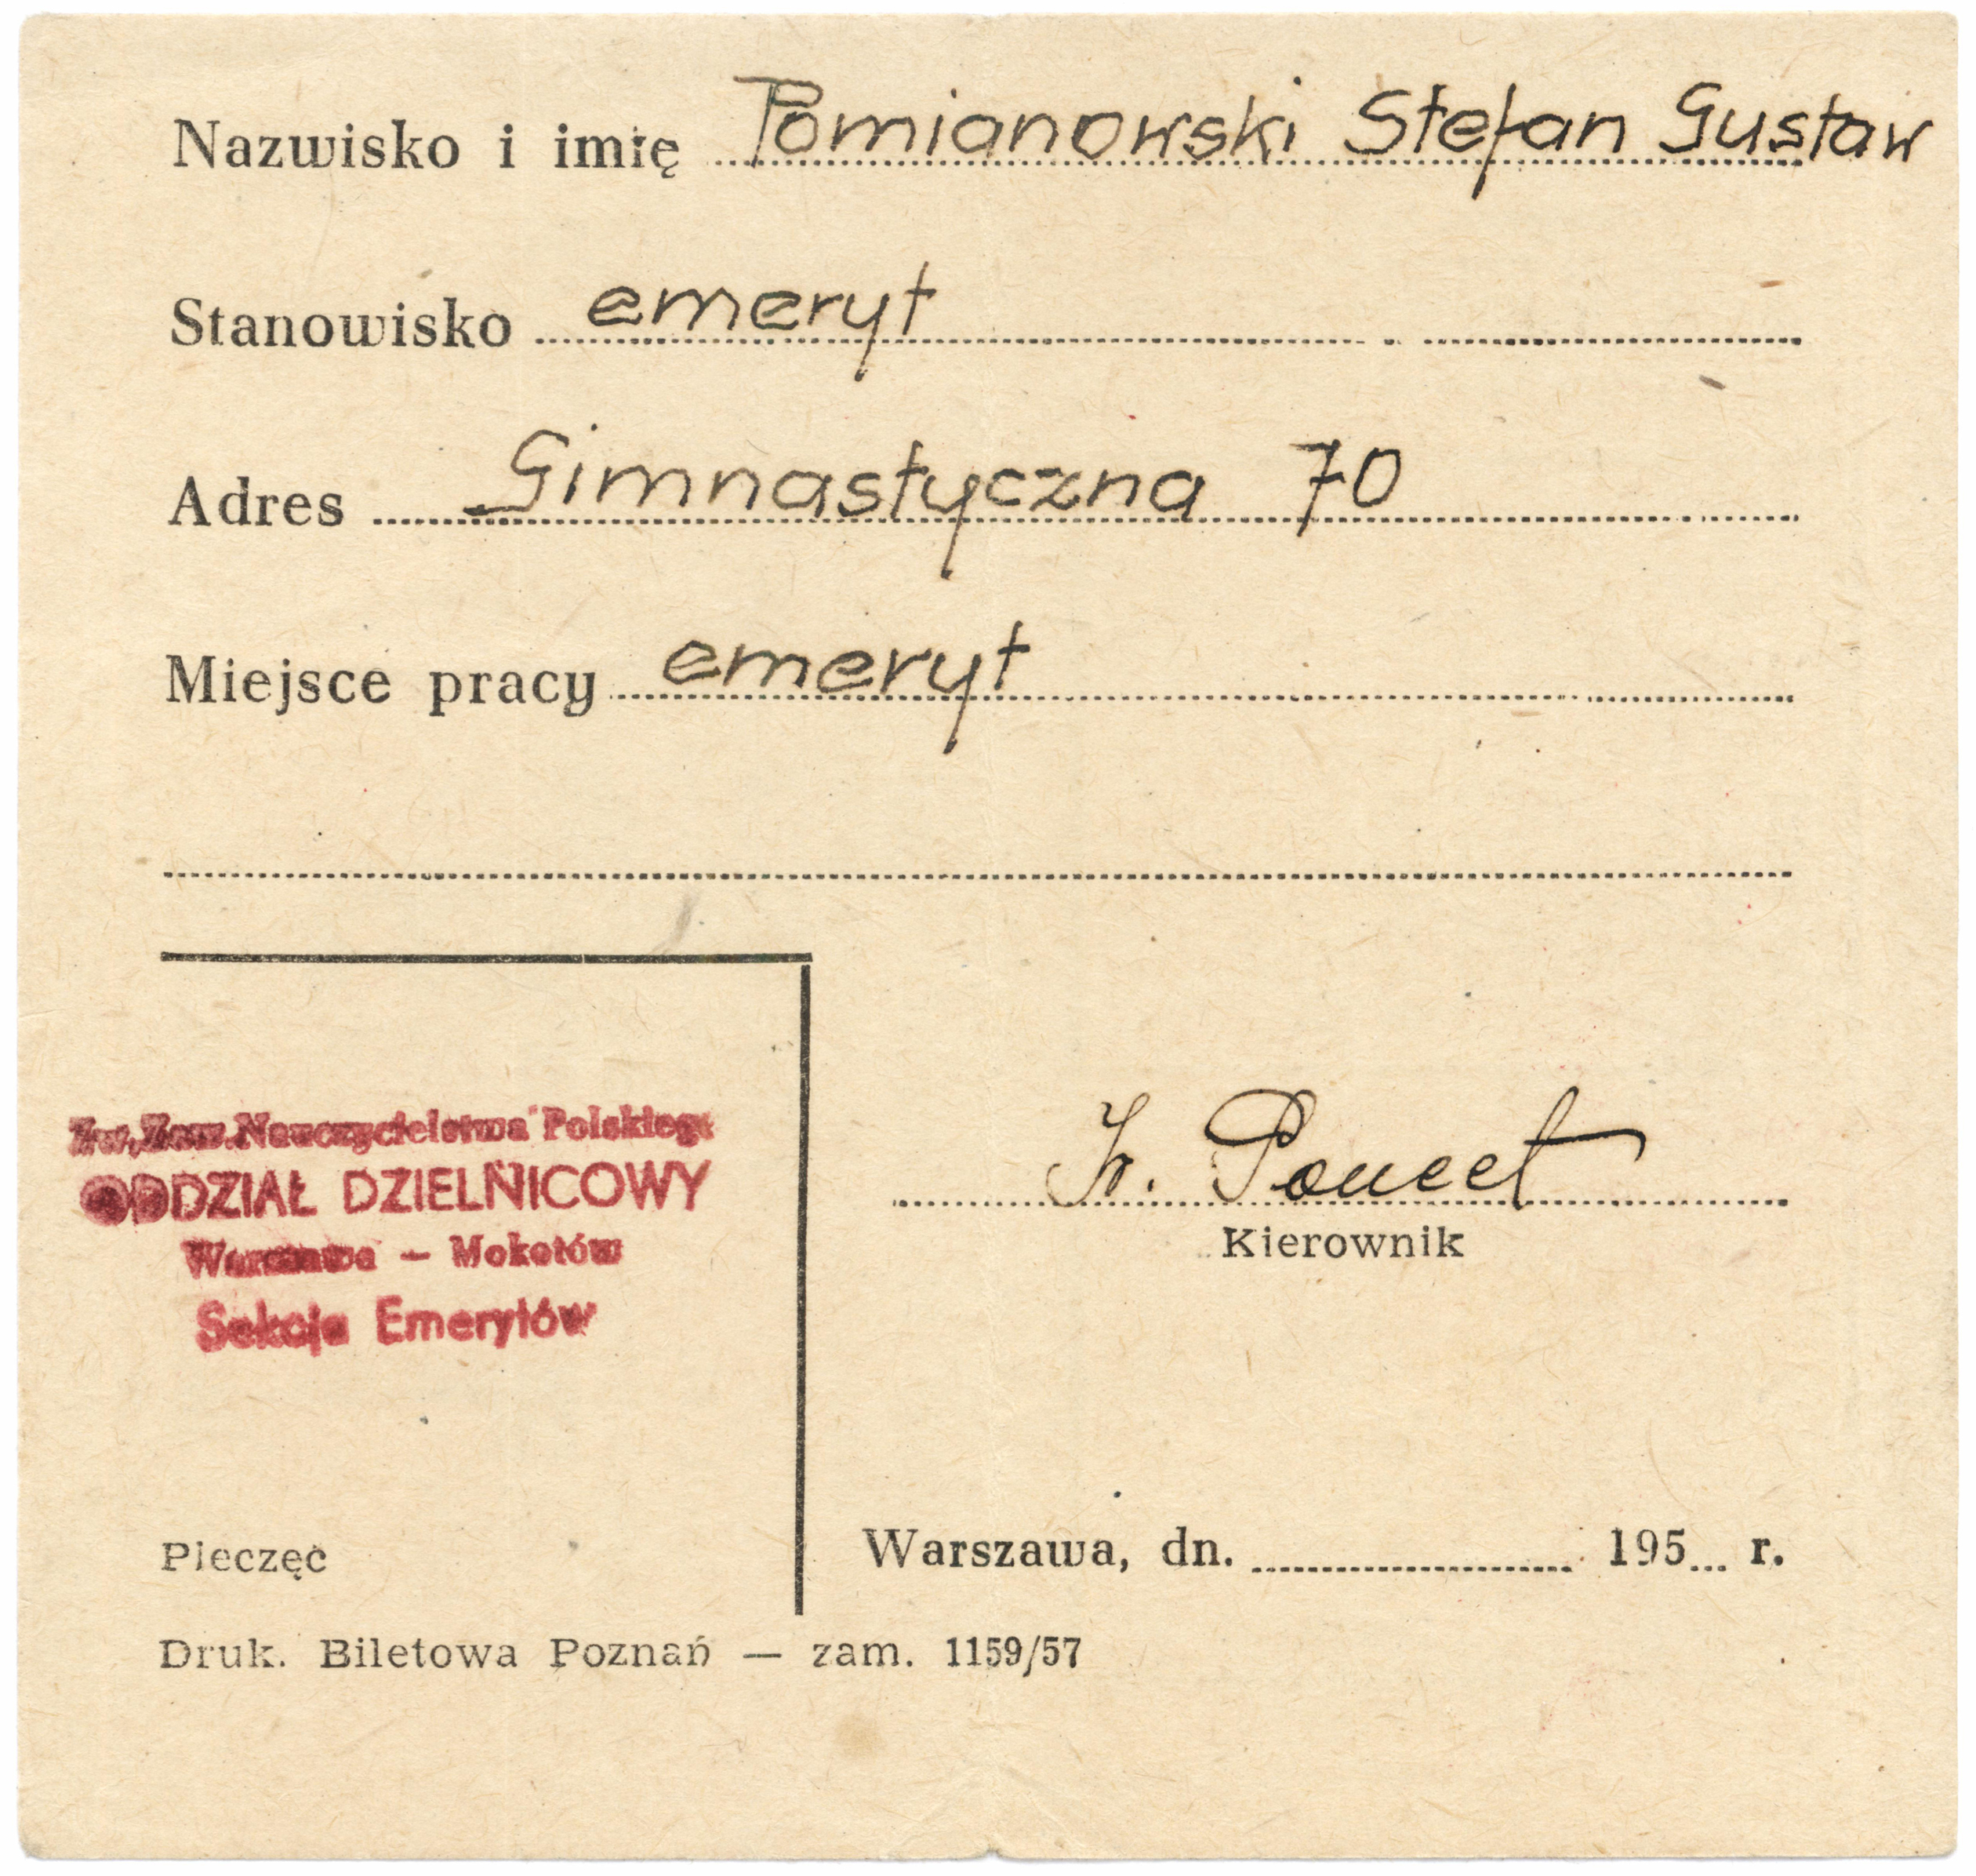 Nazwisko i imię Pomianowski Stefan Gustaw
Stanowisko emeryt
Adres Gimnastyczna 70
Miejsce pracy emeryt
Zw. Zaw. Nauczycielstwa Polskiego
ODDZIAŁ DZIELNICOWY
Warszawa — Mokotów
Sekcja Emerytów
Kierownik
Pieczęć
Warszawa, dn. 195 r.
Druk. Biletowa Poznań — zam. 1159/57